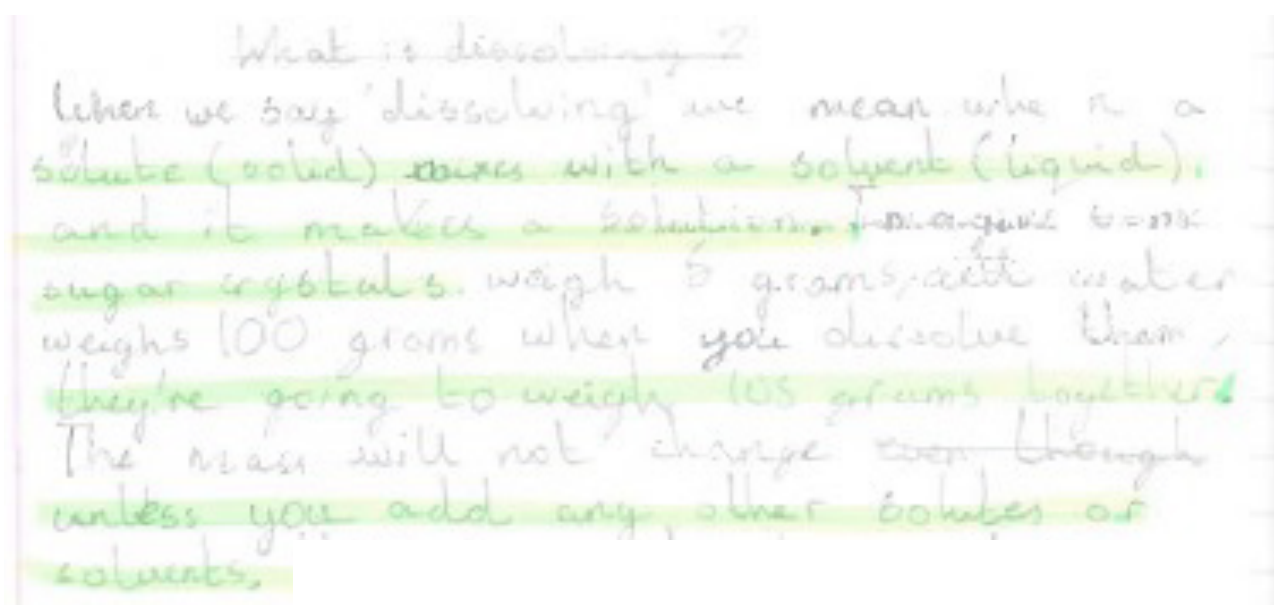 What is dissolving?
When we say 'dissolving' we mean when a
solute (solid) mixes with a solvent (liquid),
and it makes a solution. Imagine
sugar crystals. weigh 5 grams, water
weighs 100 grams when you dissolve them,
they're going to weigh 105 grams together.
The mass will not change even though
unless you add any other solutes or
solvents.